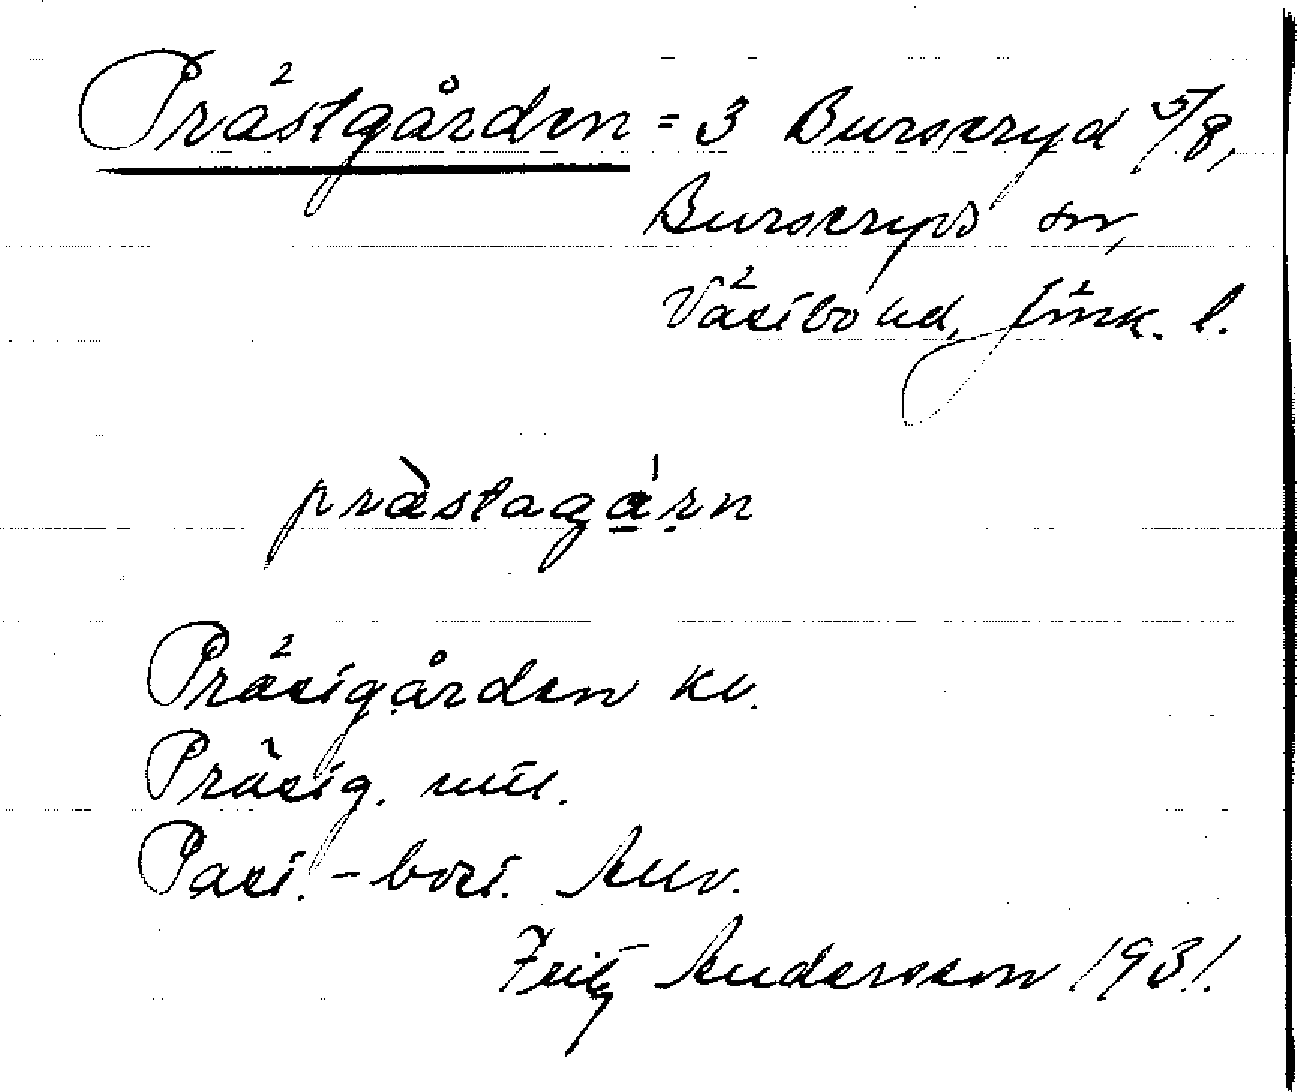 Prästgården = 3 Burseryd 5/8,
Burseryds sn,
Västbo hd, Jönk. l.
prästagárn
Prästgården kv.
Prästg.
Past. - bost.
Fritz Andersson 1931.